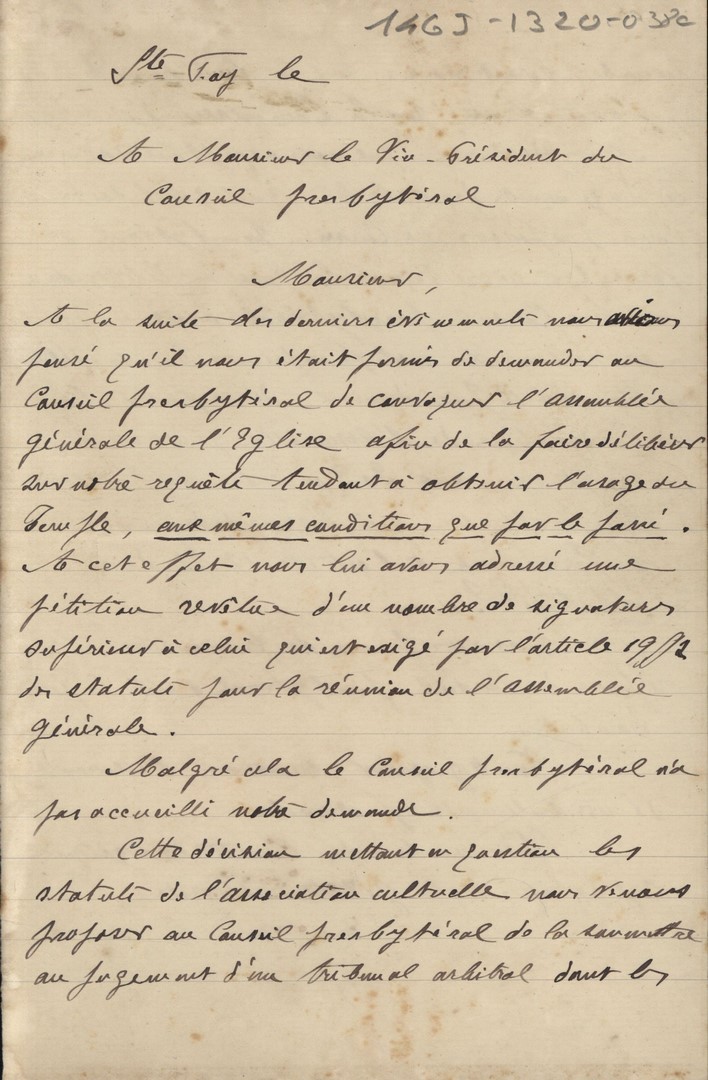 146J-1320-038c
Ste Foy le
A Monsieur le Vice-Président du
Conseil presbytéral
Monsieur,
A la suite des derniers évènements nous avions
pensé qu'il nous était permis de demander au
Conseil presbytéral de convoquer l'assemblée
générale de l'Eglise afin de la faire délibérer
sur notre requête tendant à obtenir l'usage du
Temple, aux mêmes conditions que par le passé.
A cet effet nous lui avons adressé une
pétition revêtue d'un nombre de signatures
supérieur à celui qui est exigé par l'article 19 § 2
des statuts pour la réunion de l'Assemblée
générale.
Malgré cela le Conseil presbytéral n'a
pas accueilli notre demande.
Cette décision mettant en question les
statuts de l'association cultuelle nous venons
proposer au Conseil presbytéral de la soumettre
au jugement d'un tribunal arbitral dont les